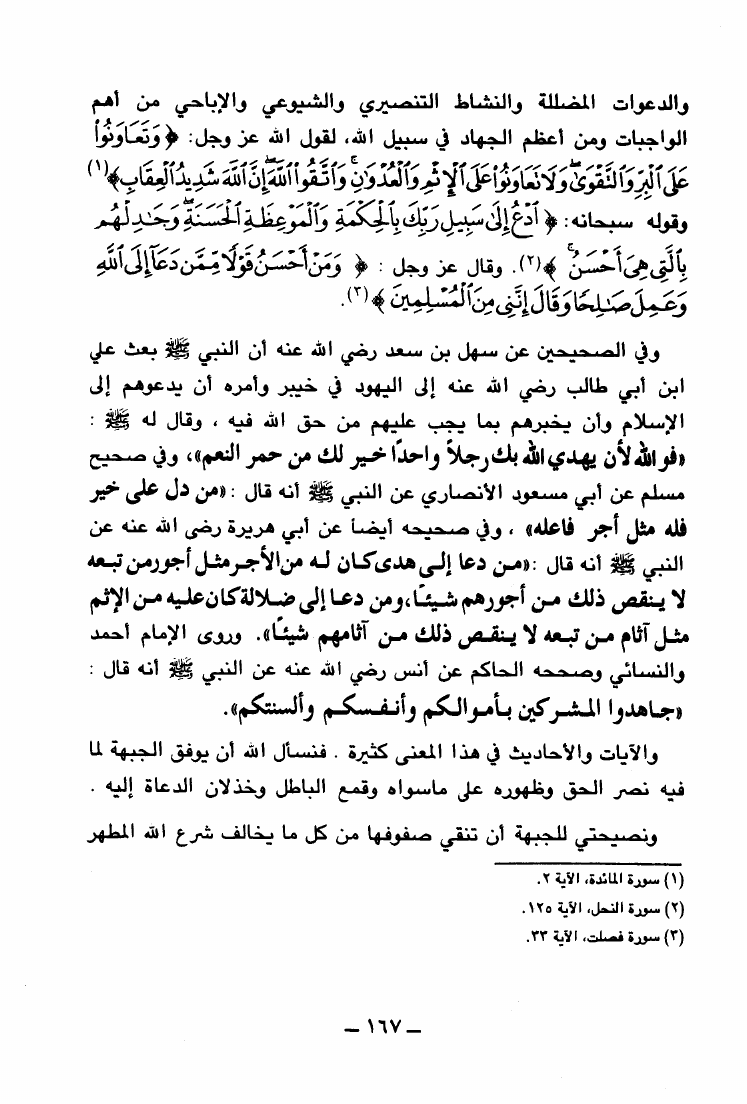 والدعوات المضللة والنشاط التنصيري والشيوعي والإباحي من أهم
الواجبات ومن أعظم الجهاد في سبيل الله، لقول الله عز وجل: ﴿وَتَعَاوَنُوا۟
عَلَى ٱلْبِرِّ وَٱلتَّقْوَىٰ وَلَا تَعَاوَنُوا۟ عَلَى ٱلْإِثْمِ وَٱلْعُدْوَٰنِ وَٱتَّقُوا۟ ٱللَّهَ إِنَّ ٱللَّهَ شَدِيدُ ٱلْعِقَابِ﴾(١)
وقوله سبحانه: ﴿ٱدْعُ إِلَىٰ سَبِيلِ رَبِّكَ بِٱلْحِكْمَةِ وَٱلْمَوْعِظَةِ ٱلْحَسَنَةِ وَجَٰدِلْهُم
بِٱلَّتِى هِىَ أَحْسَنُ﴾(٢). وقال عز وجل : ﴿وَمَنْ أَحْسَنُ قَوْلًا مِّمَّن دَعَآ إِلَى ٱللَّهِ
وَعَمِلَ صَٰلِحًا وَقَالَ إِنَّنِى مِنَ ٱلْمُسْلِمِينَ﴾(٣).
وفي الصحيحين عن سهل بن سعد رضي الله عنه أن النبي ﷺ بعث علي
ابن أبي طالب رضي الله عنه إلى اليهود في خيبر وأمره أن يدعوهم إلى
الإسلام وأن يخبرهم بما يجب عليهم من حق الله فيه ، وقال له ﷺ :
«فوالله لأن يهدي الله بك رجلاً واحدًا خير لك من حمر النعم»، وفي صحيح
مسلم عن أبي مسعود الأنصاري عن النبي ﷺ أنه قال : «من دل على خير
فله مثل أجر فاعله» ، وفي صحيحه أيضاً عن أبي هريرة رضى الله عنه عن
النبي ﷺ أنه قال : «من دعا إلى هدى كان له من الأجر مثل أجور من تبعه
لا ينقص ذلك من أجورهم شيئًا، ومن دعا إلى ضلالة كان عليه من الإثم
مثل آثام من تبعه لا ينقص ذلك من آثامهم شيئًا». وروى الإمام أحمد
والنسائي وصححه الحاكم عن أنس رضي الله عنه عن النبي ﷺ أنه قال :
«جاهدوا المشركين بأموالكم وأنفسكم وألسنتكم».
والآيات والأحاديث في هذا المعنى كثيرة . فنسأل الله أن يوفق الجبهة لما
فيه نصر الحق وظهوره على ماسواه وقمع الباطل وخذلان الدعاة إليه .
ونصيحتي للجبهة أن تنقي صفوفها من كل ما يخالف شرع الله المطهر
(١) سورة المائدة، الآية ٢.
(٢) سورة النحل، الآية ١٢٥.
(٣) سورة فصلت، الآية ٣٣.
– ١٦٧ –